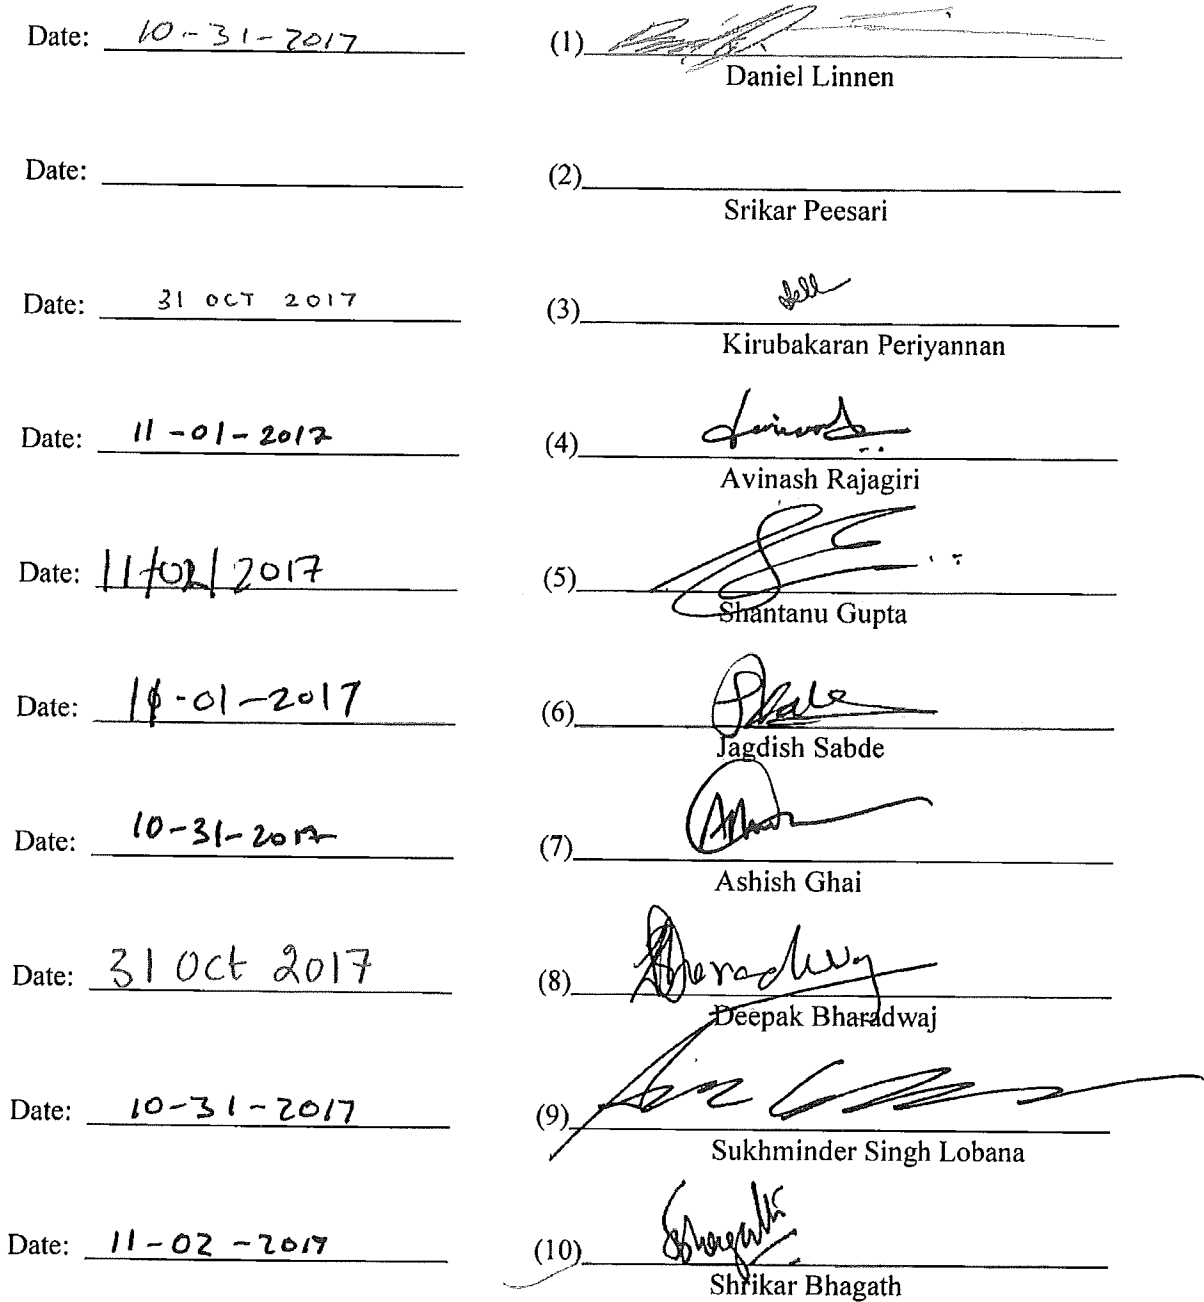 Date: 10-31-2017 (1)
Daniel Linnen
Date: (2)
Srikar Peesari
Date: 31 OCT 2017 (3)
Kirubakaran Periyannan
Date: 11-01-2017 (4)
Avinash Rajagiri
Date: 11/02/2017 (5)
Shantanu Gupta
Date: 11-01-2017 (6)
Jagdish Sabde
Date: 10-31-2017 (7)
Ashish Ghai
Date: 31 Oct 2017 (8)
Deepak Bharadwaj
Date: 10-31-2017 (9)
Sukhminder Singh Lobana
Date: 11-02-2017 (10)
Shrikar Bhagath